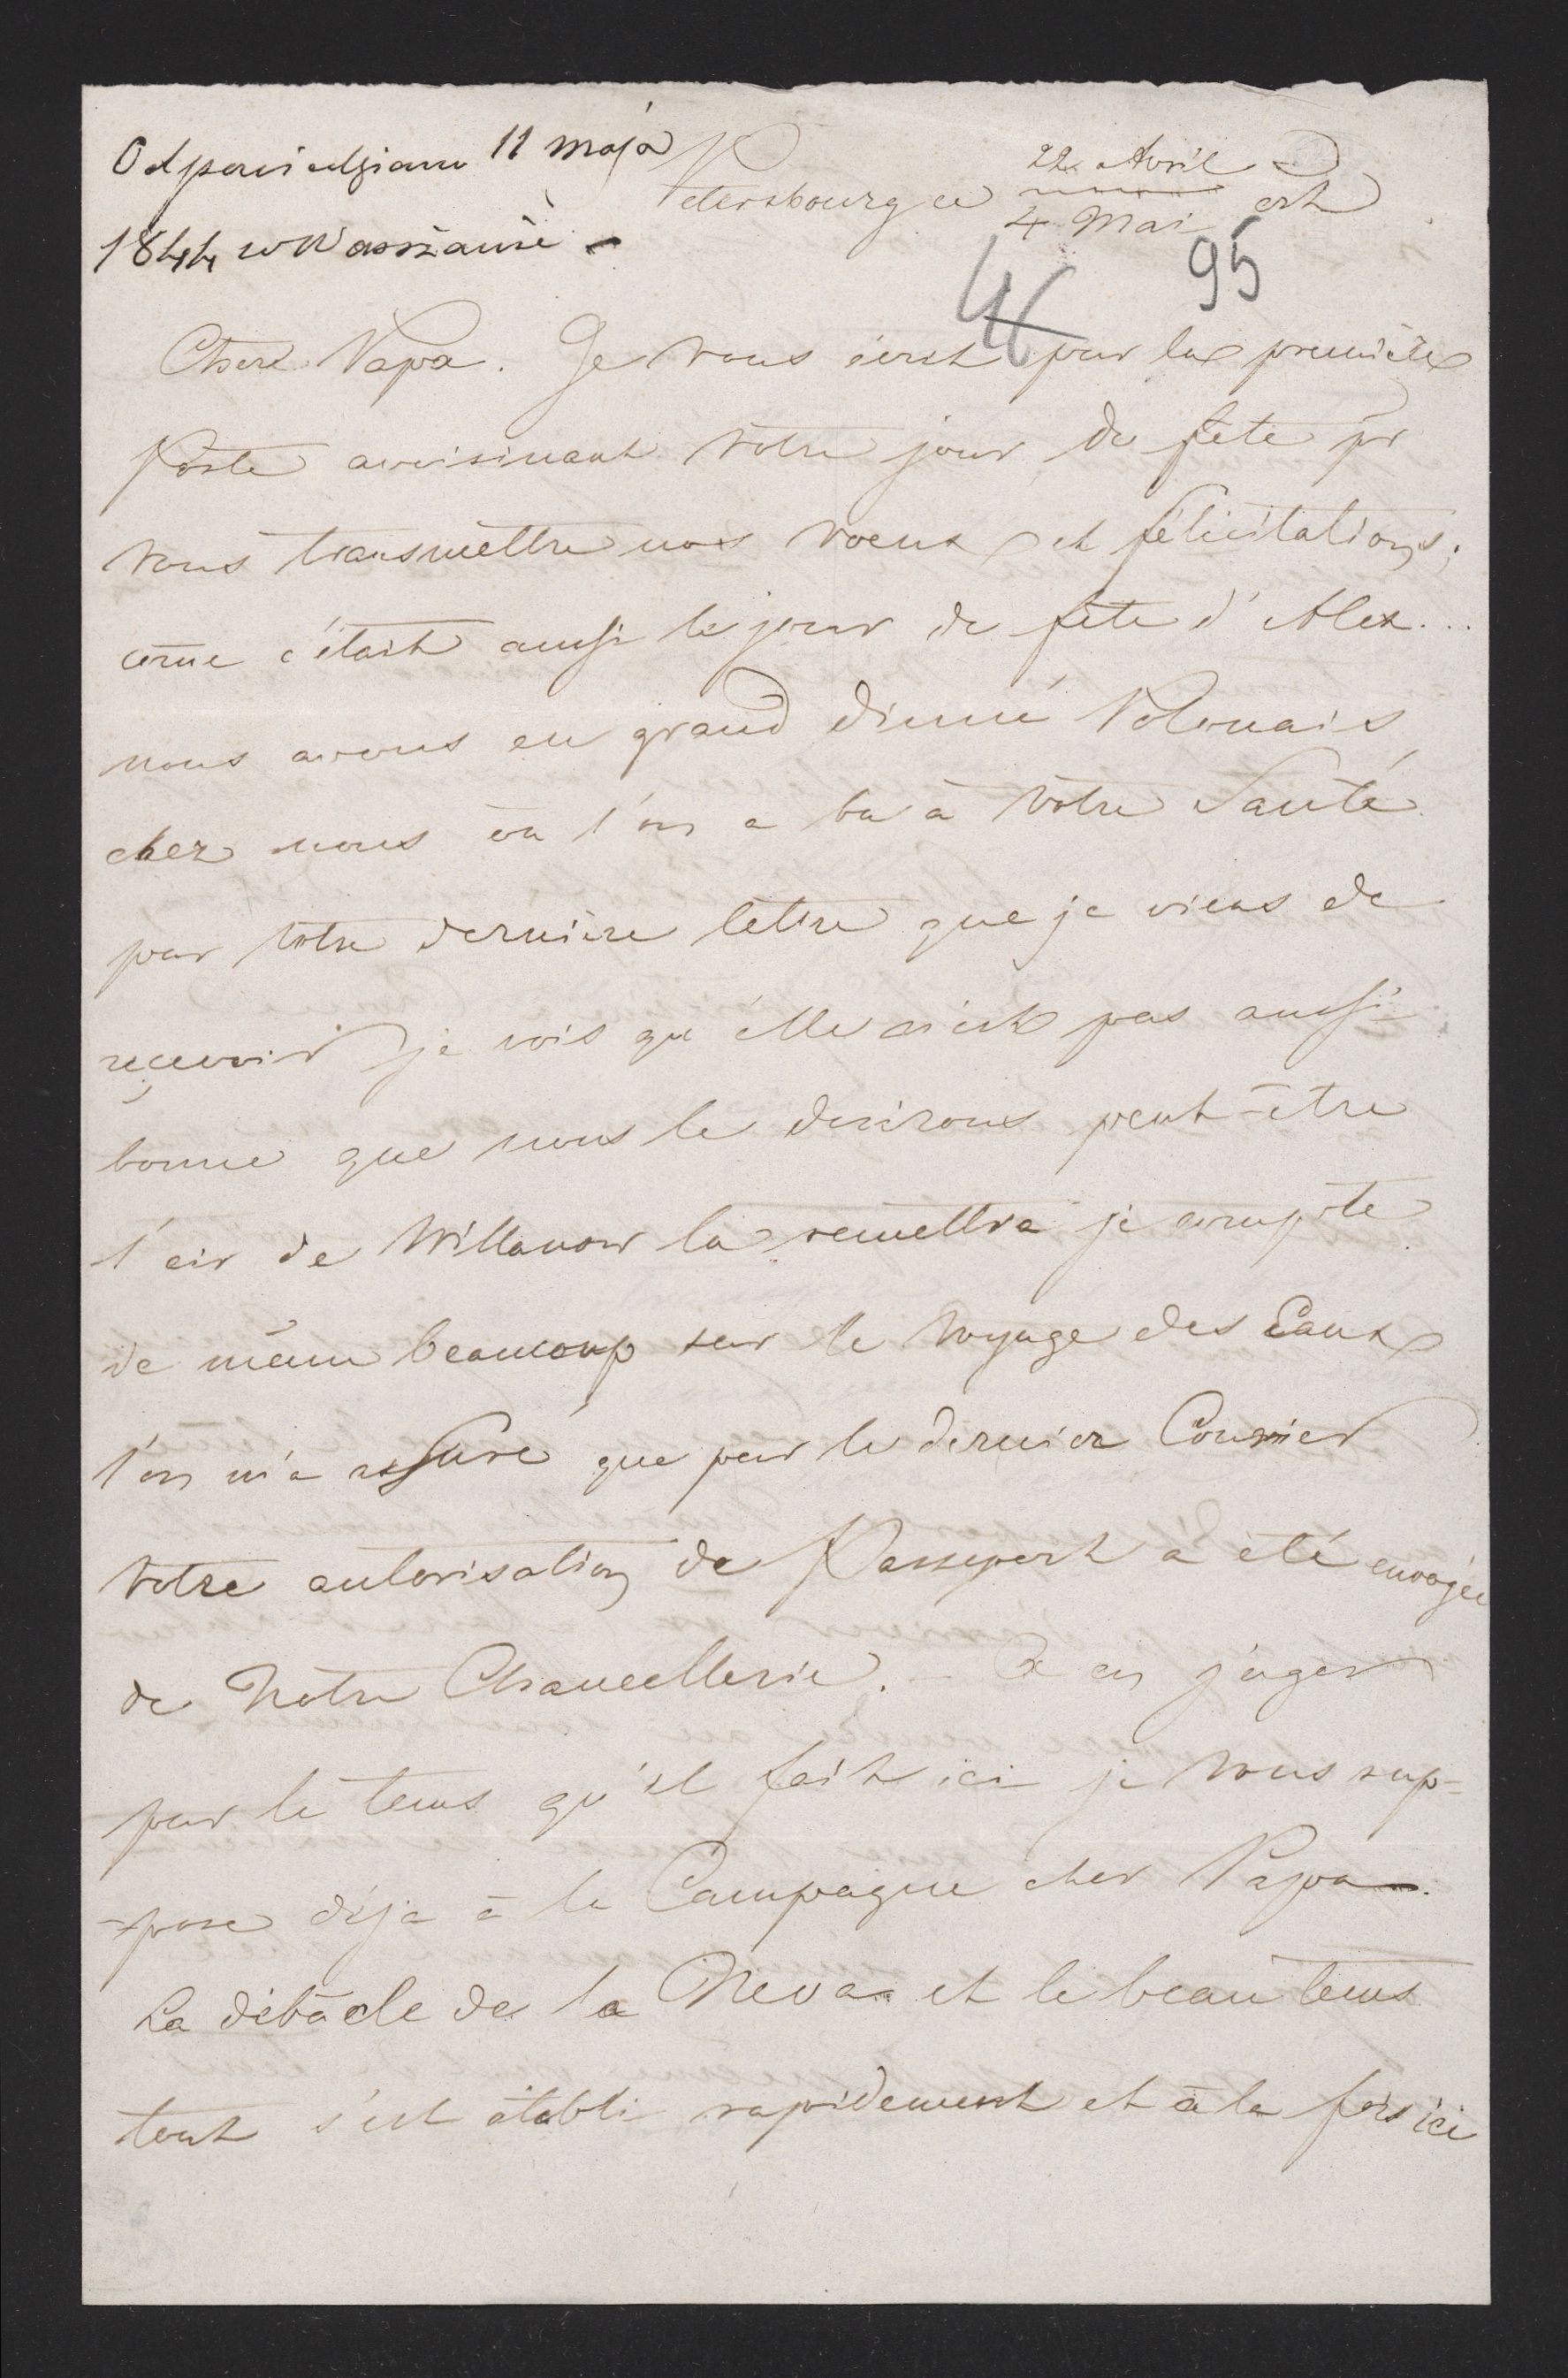 Odpowiedziano 11 maja
1844 w Warszawie
Petersbourg ce 22 Avril
4 Mai
95
Cher Papa. Je vous écrit par la première
Poste avoisinant votre jour de fête pr
vous transmettre nos voeux et félicitations;
come c'était aussi le jour de fête d'Alex...
nous avons eu grand dinné Polonais
chez nous où l'on a bu à votre Santé
par votre dernière lettre que je viens de
reçevoir je vois qu'elle n'est pas aussi
bonne que nous le desirons peut-être
l'air de Willanow la remettra je compte
de même beaucoup sur le voyage des Eaux
l'on m'a assuré que par le dernier Courrier
votre autorisation de Passeport a été envoyée
de Notre Chancellerie. – A en juger
par le tems qu'il fait ici je vous sup-
-pose déja à la Campagne cher Papa.
La débacle de la Neva et le beau tems
tout s'est établi rapidement et à la fois ici